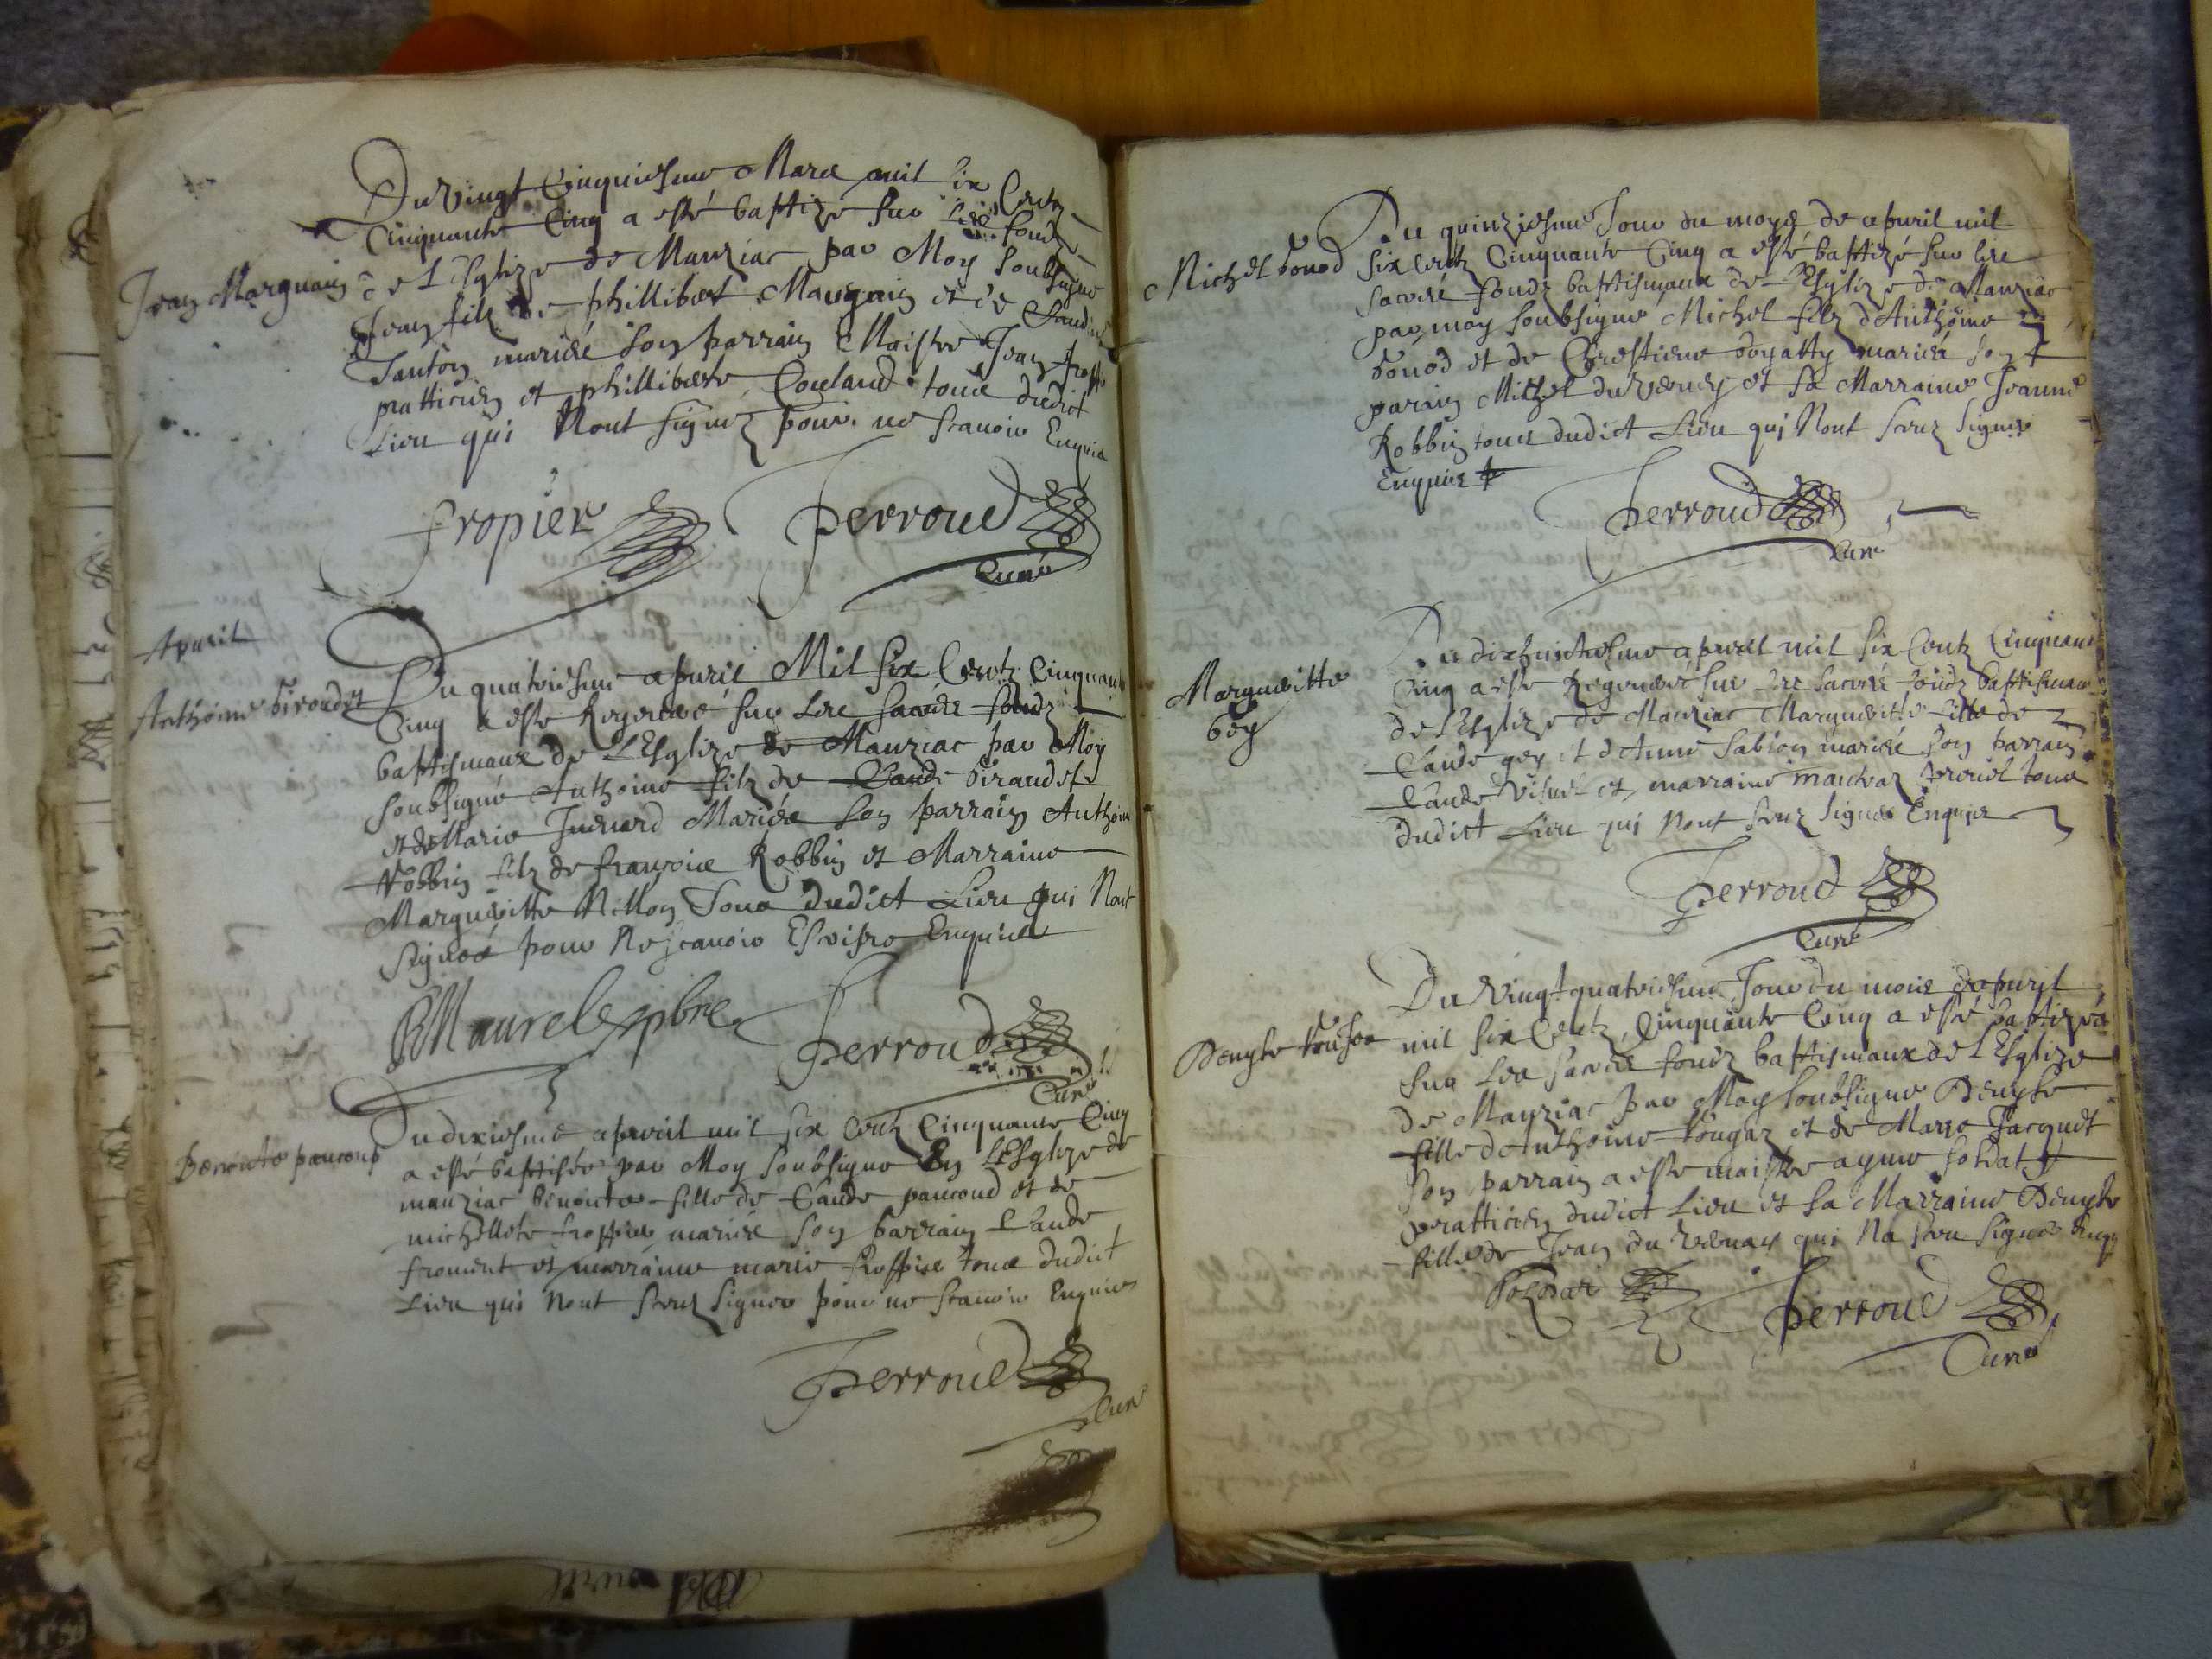 Du Vingt Cinquiesme Mars mil six Centz
Cinquante Cinq a esté baptize sur les fondz
Jean Marguin
de L Esglize de Manziac par Moy Soubsigne
Jean filz de phillibert Marguin et de Claudine
Tanton mariés son parrain Maistre Jean
pratticien et phillibert Couland tous dudict
Lieu qui Nont signez pour ne scauoir Enquis
fropier Perroud
Curé
Apuril
Anthoine Giroudet
Du quatriesme apuril Mil six Centz Cinquante
Cinq a este Regeneré sur Les sacrés fondz
baptismaux de L'Esglize de Manziac par Moy
soubsigné Anthoine filz de Claude Giraudet
et de Marie Mariés son parrain Anthoine
Robbin filz de francois Robbin et Marraine
Margueritte Nillon Tous dudict Lieu qui Nont
signes pour Ne scauoir Escripre Enquis
Perroud
Curé
Benoiste paucoud
Du dixiesme apuril mil six centz Cinquante Cinq
a esté baptisée par Moy soubsigne En L'Esglize de
manziac benoiste fille de Claude paucoud et de
michellete mariés son parrain Claude
froment et marraine marie tous dudict
Lieu qui Nont sceuz signer pour ne scauoir Enquis
Perroud
Curé
Du quinziesme Jour du moys de apuril mil
Michel bonod
six centz Cinquante Cinq a esté baptizé sur les
sacrés fondz baptismaux de L'Esglize de Manziac
par moy soubsigne Michel filz d'Anthoine
bonod et de Crestiene mariés son
parain Michel du Verney et sa Marraine Jeanne
Robbin tous dudict Lieu qui Nont sceuz signer
Enquis
Perroud
Curé
Du dixhuictiesme apuril mil six Centz Cinquante
Margueritte
Gey
Cinq a este Regeneré sur les sacrés fondz baptismaux
de L'Esglize de Manziac Margueritte fille de
Claude gey et d'Anne Sablon mariés son parrain
Claude et marraine tous
dudict Lieu qui Nont sceuz signer Enquis
Perroud
Curé
Du Vingt quatriesme Jour du mois d'apuril
Denyse
mil six Centz Cinquante Cinq a esté baptizée
sur Les sacrés fondz baptismaux de L'Esglize
de Manziac par Moy soubsigne Denyse
fille d'Anthoine et de Marie Jacquet
son parrain a este maistre ayme soldat
pratticien dudict Lieu et sa Marraine Denyse
fille de Jean du Vernay qui Na sceu signer Enquis
Perroud
Curé